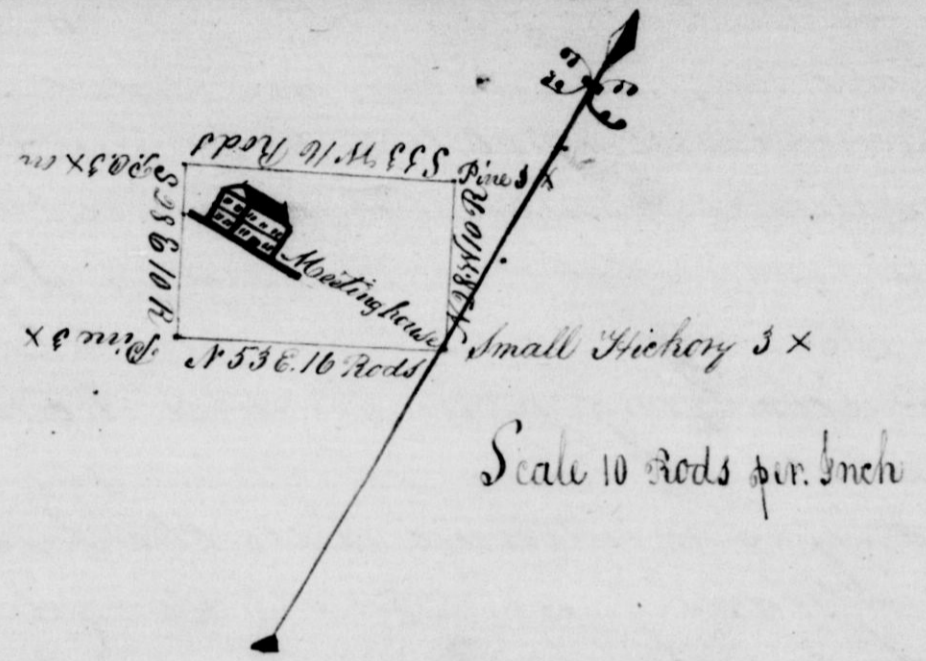 S 53 W 16 Rods
Pine 3 X
3 X
S 28 E 10 R
N 28 W 10 R
Meeting house
Pine 3 X
N 53 E. 16 Rods
Small Hickory 3 X
Scale 10 Rods per. Inch